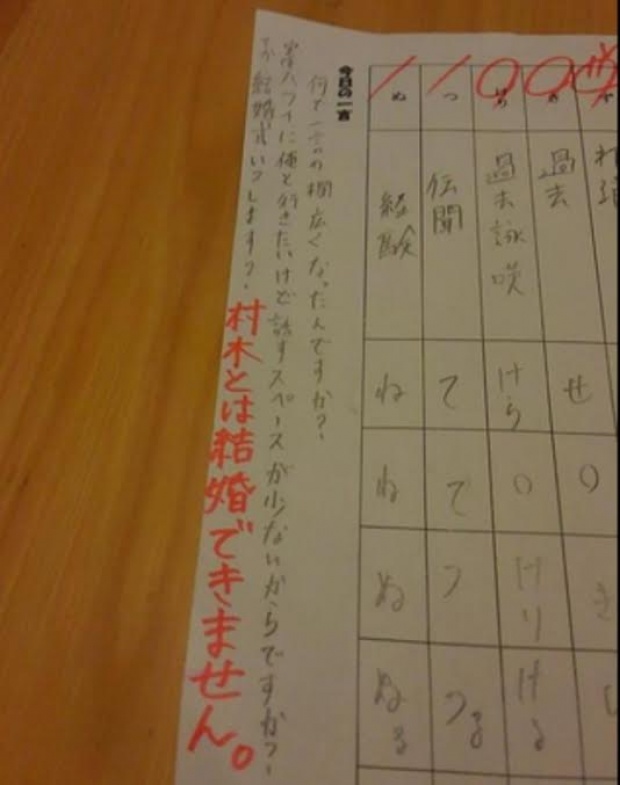 今日の一言
何で一言の欄広くなったんですか?
ハワイに俺と行きたいけど話すスペースが少ないからですか?
結婚式いつします?
村木とは結婚できません。
過去
せ
○
き
過去詠嘆
けら
○
けり
ける
つ
伝聞
て
て
つ
つる
ぬ
経験
ね
ね
ぬ
ぬる